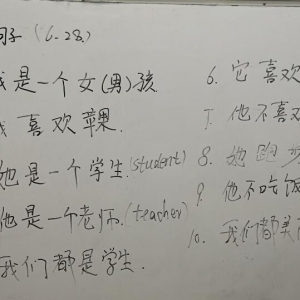 句子 (6.28.)
我是一个女(男)孩.
我 喜欢 苹果.
她是一个学生.(student)
他是一个老师.(teacher)
我们都是学生.
6. 它喜欢
7. 他不喜欢
8. 她跑步
9. 他不吃饭
10. 我们都